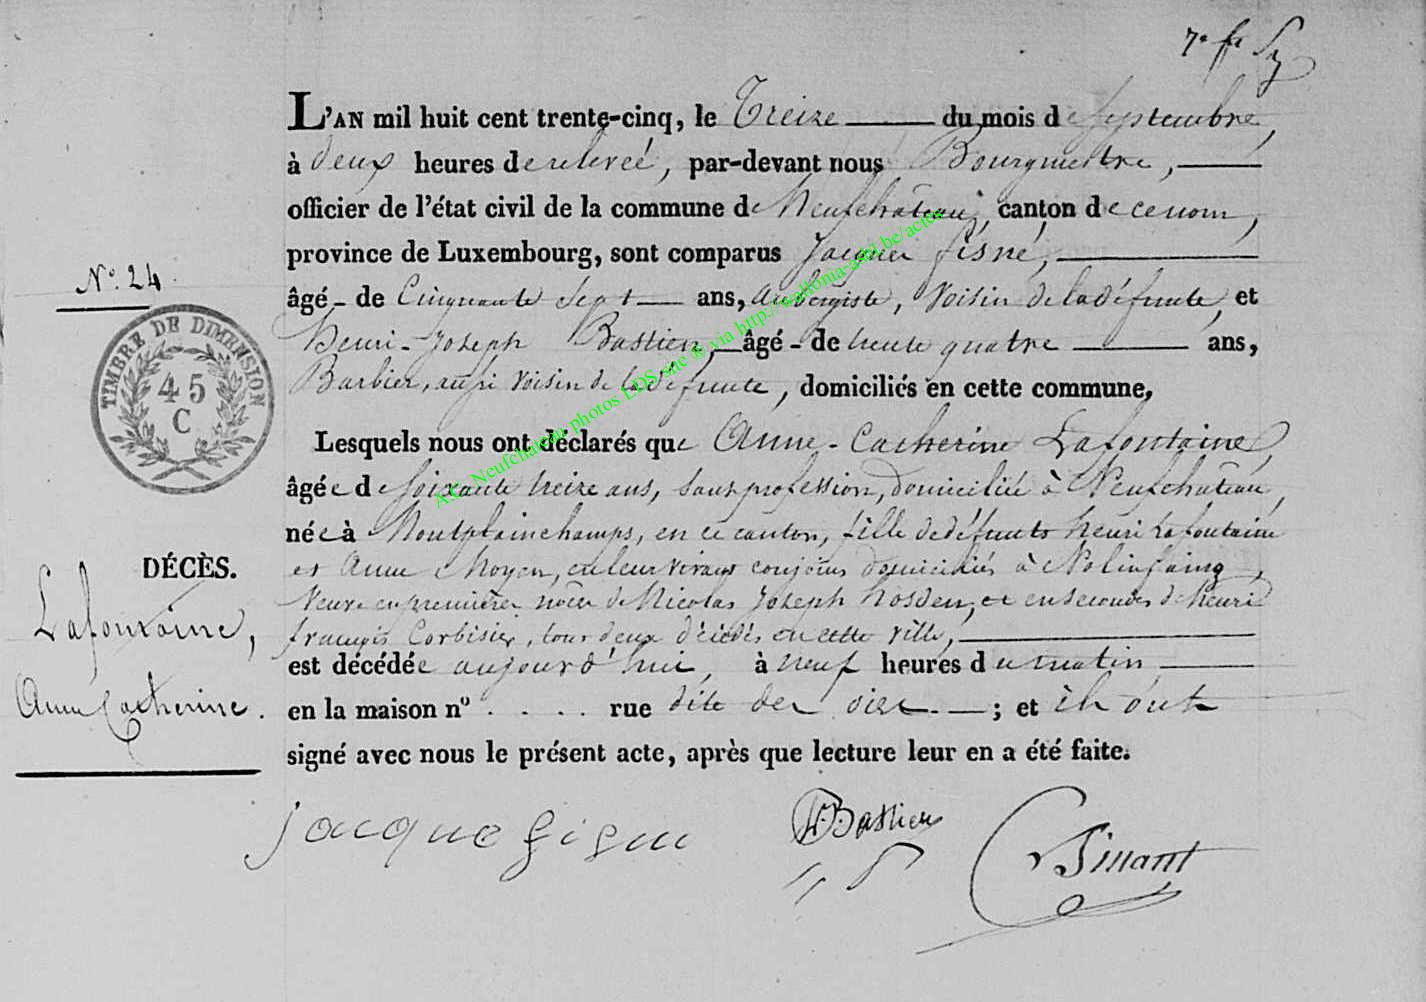 7e
L'AN mil huit cent trente-cinq, le Treize du mois de Septembre,
à deux heures de relevée, par-devant nous Bourgmestre,
officier de l'état civil de la commune de Neufchâteau, canton de ce nom,
province de Luxembourg, sont comparus Jacques
N° 24
âgé de Cinquante Sept ans, aubergiste, voisin de la défunte, et
Henri-Joseph Bastien, âgé de trente quatre ans,
Barbier, aussi voisin de la défunte, domiciliés en cette commune,
TIMBRE DE DIMENSION
45
C
A.C. Neufchateau photos LDS site @ via http://wallonia-asbl.be/actes
Lesquels nous ont déclarés que Anne-Catherine Lafontaine,
âgée de soixante treize ans, sans profession, domiciliée à Neufchâteau,
née à Montplainchamps, en ce canton, fille de défunts henri Lafontaine
DÉCÈS.
et Anne Noyen, en leur vivant conjoins domiciliés à Nolinfaing,
Veuve en premières nôces de Nicolas Joseph hosden, et en secondes de henri
françois Corbisier, tous deux décédés en cette ville,
Lafontaine,
Anne Catherine.
est décédée aujourd'hui, à neuf heures du matin
en la maison n° . . . . rue dite der ; et ils ont
signé avec nous le présent acte, après que lecture leur en a été faite.
jacque
H.J. Bastien